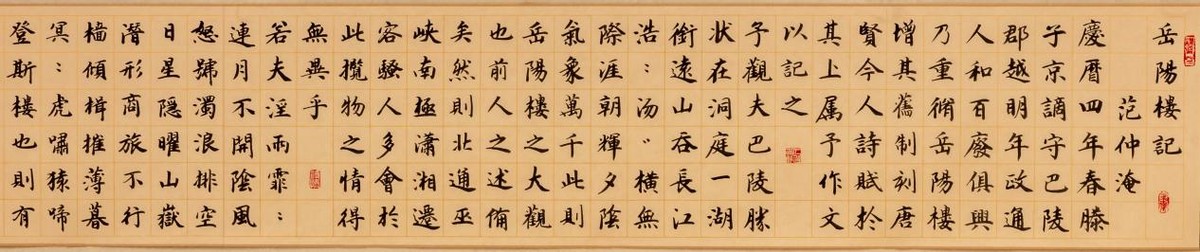 岳陽樓記
范仲淹
慶曆四年春滕
子京謫守巴陵
郡越明年政通
人和百廢俱興
乃重脩岳陽樓
增其舊制刻唐
賢今人詩賦於
其上属予作文
以記之
予觀夫巴陵勝
状在洞庭一湖
銜遠山吞長江
浩:汤:橫無
際涯朝輝夕陰
氣象萬千此則
岳陽樓之大觀
也前人之述備
矣然則北通巫
峽南極瀟湘遷
客騷人多會於
此攬物之情得
無異乎
若夫淫雨霏:
連月不開陰風
怒號濁浪排空
日星隱曜山嶽
潛形商旅不行
檣傾楫摧薄暮
冥:虎嘯猿啼
登斯樓也則有